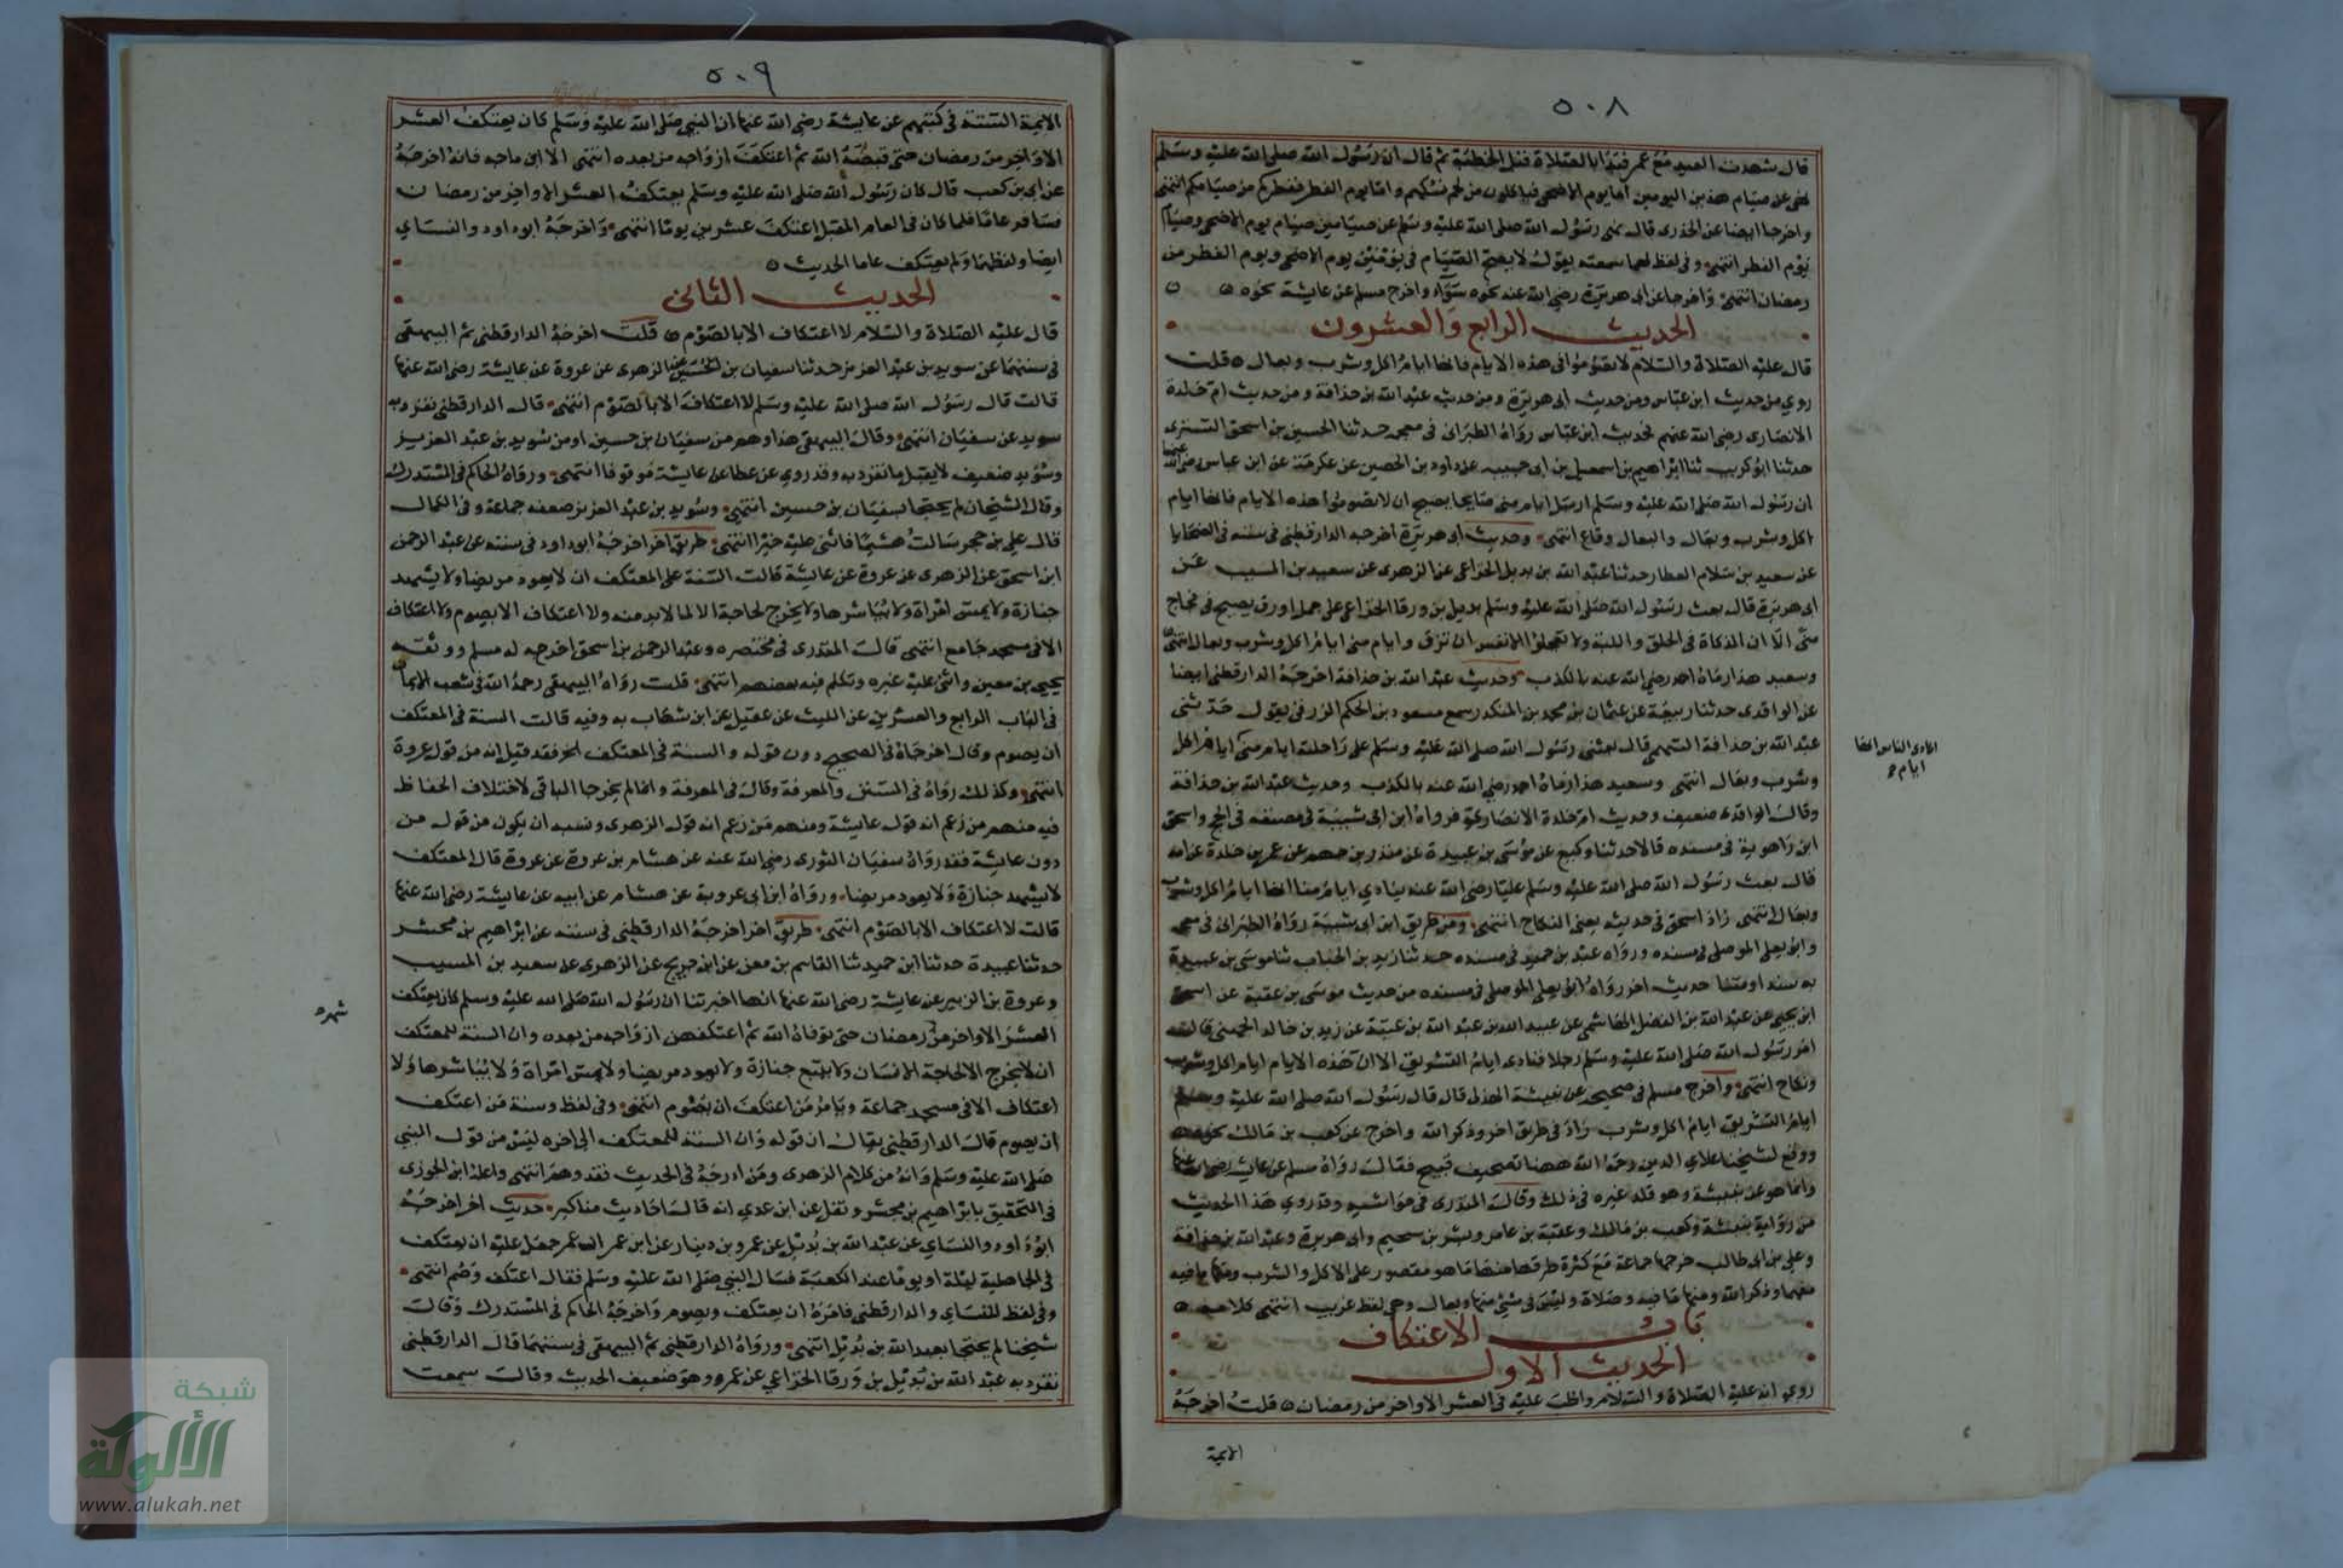 ٥٠٨
قال شهدت العيد مع عمر فبدا بالصلاة قبل الخطبة ثم قال ان رسول الله صلى الله عليه وسلم
نهى عن صيام هذين اليومين اما يوم الاضحى فتاكلون من لحم نسككم واما يوم الفطر ففطركم من صيامكم انتهى
واخرجا ايضا عن الخدرى قال نهى رسول الله صلى الله عليه وسلم عن صيامين صيام يوم الاضحى وصيام
يوم الفطر انتهى وفى لفظ لهما سمعته يقول لا يصح الصيام فى يومين يوم الاضحى ويوم الفطر من
رمضان انتهى واخرجا عن ابى هريرة رضى الله عنه نحوه سواء واخرج مسلم عن عايشة نحوه
الحديث الرابع والعشرون
قال عليه الصلاة والسلام لا تصوموا فى هذه الايام فانها ايام اكل وشرب وبعال قلت
روي من حديث ابن عباس ومن حديث ابى هريرة ومن حديث عبد الله بن حذافة ومن حديث ام خلدة
الانصارى رضى الله عنهم فحديث ابن عباس رواه الطبرانى فى معجمه حدثنا الحسين بن اسحق التسترى
حدثنا ابو كريب ثنا ابراهيم بن اسمعيل بن ابى حبيبه عن داود بن الحصين عن عكرمة عن ابن عباس رضى الله عنهما
ان رسول الله صلى الله عليه وسلم ارسل ايام منى صايحا يصيح ان لا تصوموا هذه الايام فانها ايام
اكل وشرب وبعال والبعال وقاع انتهى وحديث ابى هريرة اخرجه الدارقطنى فى سننه فى الضحايا
عن سعيد بن سلام العطار حدثنا عبد الله بن بديل الخزاعى عن الزهرى عن سعيد بن المسيب عن
ابى هريرة قال بعث رسول الله صلى الله عليه وسلم بديل بن ورقا الخزاعى على جمل اورق يصيح فى فجاج
منى الا ان الذكاة فى الحلق واللبة ولا تعجلوا الانفس ان تزهق وايام منى ايام اكل وشرب وبعال انتهى
وسعيد هذا رماه احمد رضى الله عنه بالكذب وحديث عبد الله بن حذافة اخرجه الدارقطنى ايضا
عن الواقدى حدثنا ربيعة عن عثمان بن محمد بن المنكدر سمع مسعود بن الحكم الزرقى يقول حدثنى
عبد الله بن حذافة السهمى قال بعثنى رسول الله صلى الله عليه وسلم على راحلته ايام منى ايام اكل
انادى الناس انها
ايام
وشرب وبعال انتهى وسعيد هذا رماه احمد رضى الله عنه بالكذب وحديث عبد الله بن حذافة
وقال الواقدى ضعيف وحديث ام خلدة الانصارية فرواه ابن ابى شيبة فى مصنفه فى الحج واسحق
ابن راهوية فى مسنده قالا حدثنا وكيع عن موسى بن عبيدة عن منذر بن جهم عن عمر بن خلدة عن امه
قال بعث رسول الله صلى الله عليه وسلم عليا رضى الله عنه ينادي ايام منا انها ايام اكل وشرب
وبعال انتهى زاد اسحق فى حديثه يعنى النكاح انتهى ومن طريق ابن ابى شيبة رواه الطبرانى فى معجمه
وابو يعلى الموصلى فى مسنده ورواه عبد بن حميد فى مسنده حدثنا زيد بن الحباب ثنا موسى بن عبيدة
به سندا ومتنا حديث اخر رواه ابو يعلى الموصلى فى مسنده من حديث موسى بن عقبة عن اسحق
ابن يحيى عن عبد الله بن الفضل الهاشمى عن عبيد الله بن عبد الله بن عتبة عن زيد بن خالد الجهنى قال
امر رسول الله صلى الله عليه وسلم رجلا فنادى ايام التشريق الا ان هذه الايام ايام اكل وشرب
ونكاح انتهى واخرج مسلم فى صحيحه عن نبيشة الهذلى قال قال رسول الله صلى الله عليه وسلم
ايام التشريق ايام اكل وشرب زاد فى طريق اخر وذكر الله واخرج عن كعب بن مالك نحوه
ووقع لشيخنا علاي الدين رحمه الله ههنا تصحيف قبيح فقال رواه مسلم عن عايشة رضى الله عنها
وانما هو عن نبيشة وهو قلد غيره فى ذلك وقال المنذرى فى حواشيه وقد روي هذا الحديث
من رواية نبيشة وكعب بن مالك وعقبة بن عامر وبشر بن سحيم وابى هريرة وعبد الله بن حذافة
وعلى بن ابى طالب خرجها جماعة مع كثرة طرقها منها ما هو مقصور على الاكل والشرب ومنها ما فيه
معهما وذكر الله ومنها ما فيه وصلاة وليس فى شئ منها وبعال وهى لفظ غريب انتهى كلامه
باب الاعتكاف
الحديث الاول
روي انه عليه الصلاة والسلام واظب عليه فى العشر الاواخر من رمضان قلت اخرجه
الايمة
٥٠٩
الايمة الستة فى كتبهم عن عايشة رضى الله عنها ان النبى صلى الله عليه وسلم كان يعتكف العشر
الاواخر من رمضان حتى قبضه الله ثم اعتكف ازواجه من بعده انتهى الا ابن ماجه فانه اخرجه
عن ابى بن كعب قال كان رسول الله صلى الله عليه وسلم يعتكف العشر الاواخر من رمضان
فسافر عاما فلما كان فى العام المقبل اعتكف عشرين يوما انتهى واخرجه ابو داود والنساي
ايضا ولفظهما ولم يعتكف عاما الحديث
الحديث الثانى
قال عليه الصلاة والسلام لا اعتكاف الا بالصوم قلت اخرجه الدارقطنى ثم البيهقى
فى سننهما عن سويد بن عبد العزيز حدثنا سفيان بن الحسين عن الزهرى عن عروة عن عايشة رضى الله عنها
قالت قال رسول الله صلى الله عليه وسلم لا اعتكاف الا بالصوم انتهى قال الدارقطنى تفرد به
سويد عن سفيان انتهى وقال البيهقى هذا وهم من سفيان بن حسين او من سويد بن عبد العزيز
وسويد ضعيف لا يقبل ما تفرد به وقد روي عن عطا عن عايشة موقوفا انتهى ورواه الحاكم فى المستدرك
وقال الشيخان لم يحتجا بسفيان بن حسين انتهى وسويد بن عبد العزيز ضعفه جماعة وفى الكمال
قال على بن حجر سالت هشيما فاثنى عليه خيرا انتهى طريق اخر اخرجه ابو داود فى سننه عن عبد الرحمن
ابن اسحق عن الزهرى عن عروة عن عايشة قالت السنة على المعتكف ان لا يعود مريضا ولا يشهد
جنازة ولا يمس امراة ولا يباشرها ولا يخرج لحاجة الا لما لا بد منه ولا اعتكاف الا بصوم ولا اعتكاف
الا فى مسجد جامع انتهى قال المنذرى فى مختصره وعبد الرحمن بن اسحق اخرج له مسلم ووثقه
يحيى بن معين واثنى عليه غيره وتكلم فيه بعضهم انتهى قلت رواه البيهقى رحمه الله فى شعب الايمان
فى الباب الرابع والعشرين عن الليث عن عقيل عن ابن شهاب به وفيه قالت السنة فى المعتكف
ان يصوم وقال اخرجاه فى الصحيح دون قوله والسنة فى المعتكف الخ فقد قيل انه من قول عروة
انتهى وكذلك رواه فى السنن والمعرفة وقال فى المعرفة وانما لم يخرجا الباقى لاختلاف الحفاظ
فيه منهم من زعم انه قول عايشة ومنهم من زعم انه قول الزهرى ونسبه ان يكون من قول من
دون عايشة فقد رواه سفيان الثورى رضى الله عنه عن هشام بن عروة عن عروة قال المعتكف
لا يشهد جنازة ولا يعود مريضا ورواه ابن ابى عروبة عن هشام عن ابيه عن عايشة رضى الله عنها
قالت لا اعتكاف الا بالصوم انتهى طريق اخر اخرجه الدارقطنى فى سننه عن ابراهيم بن محشر
حدثنا عبيدة حدثنا ابن حميد ثنا القاسم بن معن عن ابن جريج عن الزهرى عن سعيد بن المسيب
وعروة بن الزبير عن عايشة رضى الله عنها انها اخبرتنا ان رسول الله صلى الله عليه وسلم كان يعتكف
شهر
العشر الاواخر من رمضان حتى توفاه الله ثم اعتكفهن ازواجه من بعده وان السنة للمعتكف
ان لا يخرج الا لحاجة الانسان ولا يتبع جنازة ولا يعود مريضا ولا يمس امراة ولا يباشرها ولا
اعتكاف الا فى مسجد جماعة ويامر من اعتكف ان يصوم انتهى وفى لفظ وسنة من اعتكف
ان يصوم قال الدارقطنى يقال ان قوله وان السنة للمعتكف الى اخره ليس من قول النبى
صلى الله عليه وسلم وانه من كلام الزهرى ومن ادرجه فى الحديث فقد وهم انتهى واعله ابن الجوزى
فى التحقيق بابراهيم بن محشر ونقل عن ابن عدي انه قال له احاديث مناكير حديث اخر اخرجه
ابو داود والنساي عن عبد الله بن بديل عن عمرو بن دينار عن ابن عمر ان عمر جعل عليه ان يعتكف
فى الجاهلية ليلة او يوما عند الكعبة فسال النبى صلى الله عليه وسلم فقال اعتكف وصم انتهى
وفى لفظ للنساي والدارقطنى فامره ان يعتكف ويصوم واخرجه الحاكم فى المستدرك وقال
شيخنا لم يحتجا بعبد الله بن بديل انتهى ورواه الدارقطنى ثم البيهقى فى سننهما قال الدارقطنى
تفرد به عبد الله بن بديل بن ورقا الخزاعي عن عمرو وهو ضعيف الحديث وقال سمعت
شبكة
الألوكة
www.alukah.net